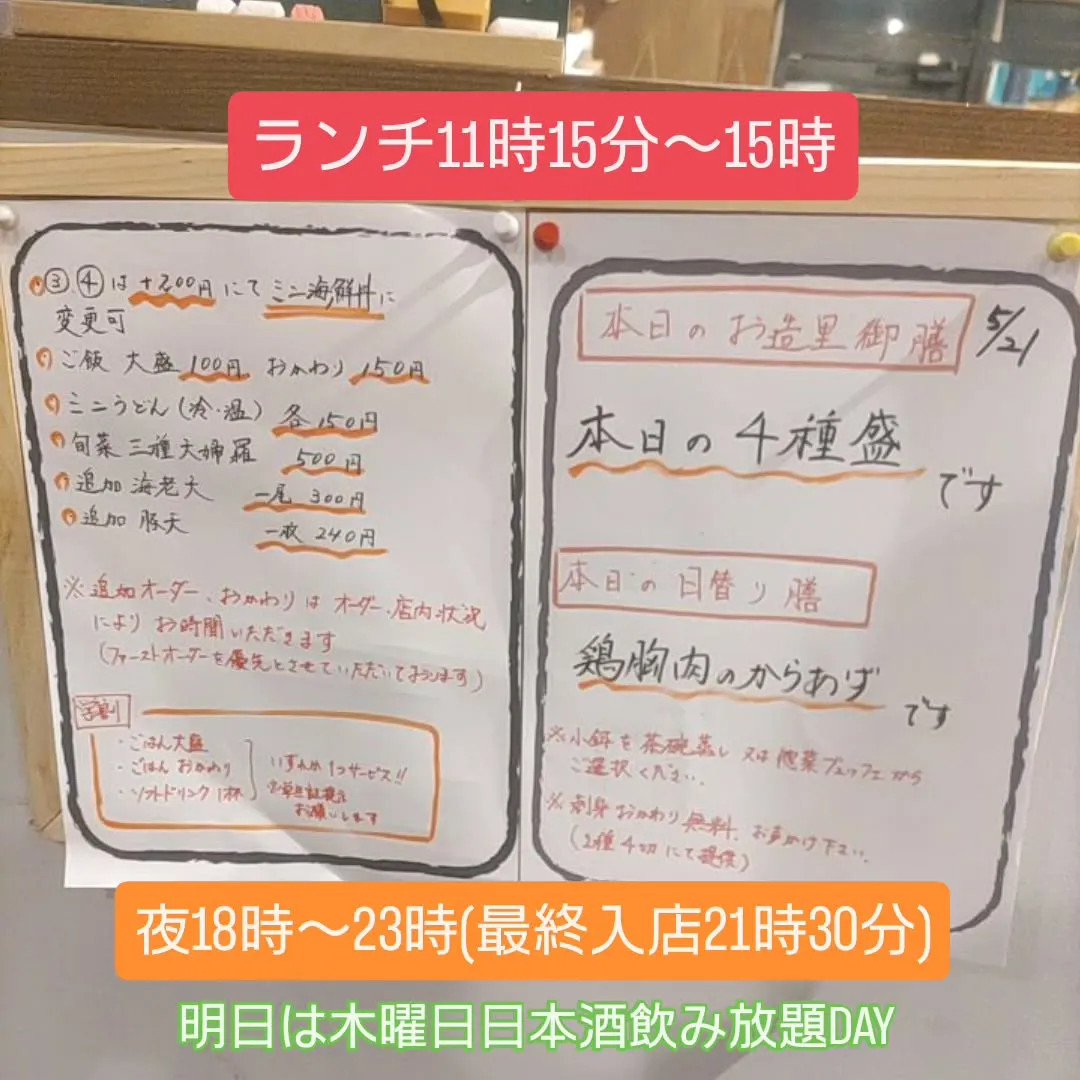 ランチ11時15分〜15時
③、④は+200円にてミニ海鮮丼に
変更可
ご飯 大盛100円、おかわり150円
ミニうどん(冷・温) 各150円
旬菜三種天婦羅 500円
追加海老天 一尾300円
追加豚天 一枚240円
※追加オーダー、おかわりはオーダー・店内状況
によりお時間いただきます
(ファーストオーダーを優先とさせていただいております)
学割
・ごはん大盛
・ごはんおかわり
・ソフトドリンク1杯
いずれか1つサービス!!
※学生証提示
お願いします
本日のお造里御膳
5/21
本日の4種盛
です
本日の日替り膳
鶏胸肉のからあげ
です
※小鉢を茶碗蒸し又は惣菜ブュッフェから
ご選択ください。
※刺身おかわり無料、お声かけ下さい。
(2種4切にて提供)
夜18時〜23時(最終入店21時30分)
明日は木曜日日本酒飲み放題DAY